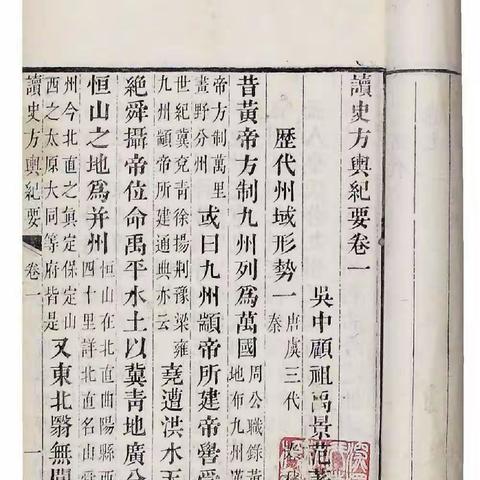 讀史方輿紀要卷一
吳中顧祖禹景范著
歷代州域形勢一 唐虞三代
秦
昔黃帝方制九州列爲萬國 周公職錄黃
地布九州漢
帝方制萬里
畫野分州 或曰九州顓帝所建帝嚳受
世紀冀兗青徐揚荆豫梁雍
九州顓帝所建通典亦云 堯遭洪水天
絶舜攝帝位命禹平水土以冀青地廣分
恒山之地爲并州 恒山在北直曲陽縣西
四十里詳北直名山
州今北直之眞定保定山
西之太原大同等府皆是 又東北醫無閭
讀史方輿紀要 卷一 一